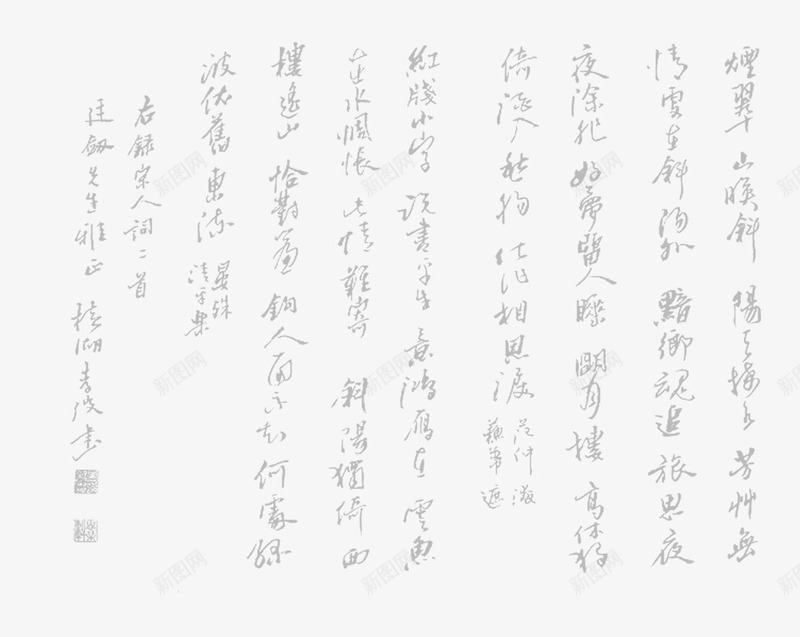 煙翠山暎斜陽天接水芳艸無
情更在斜陽外黯鄉魂追旅思夜
夜除非好夢留人睡明月樓高休獨
倚酒入愁腸化作相思淚
范仲淹
蘇幕遮
紅牋小字說盡平生意鴻雁在雲魚
在水惆悵此情難寄斜陽獨倚西
樓遙山恰對簾鉤人面不知何處綠
波依舊東流
晏殊
清平樂
右錄宋人詞二首
廷劍先生雅正
新图网